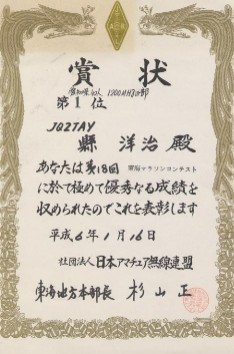 賞状
愛知県 個人 1200MHz部
第1位
JQ2TAY
縣 洋治 殿
あなたは第18回 東海マラソンコンテスト
に於て極めて優秀なる成績を
収められたのでこれを表彰します
平成6年1月16日
社団法人日本アマチュア無線連盟
東海地方本部長 杉山正